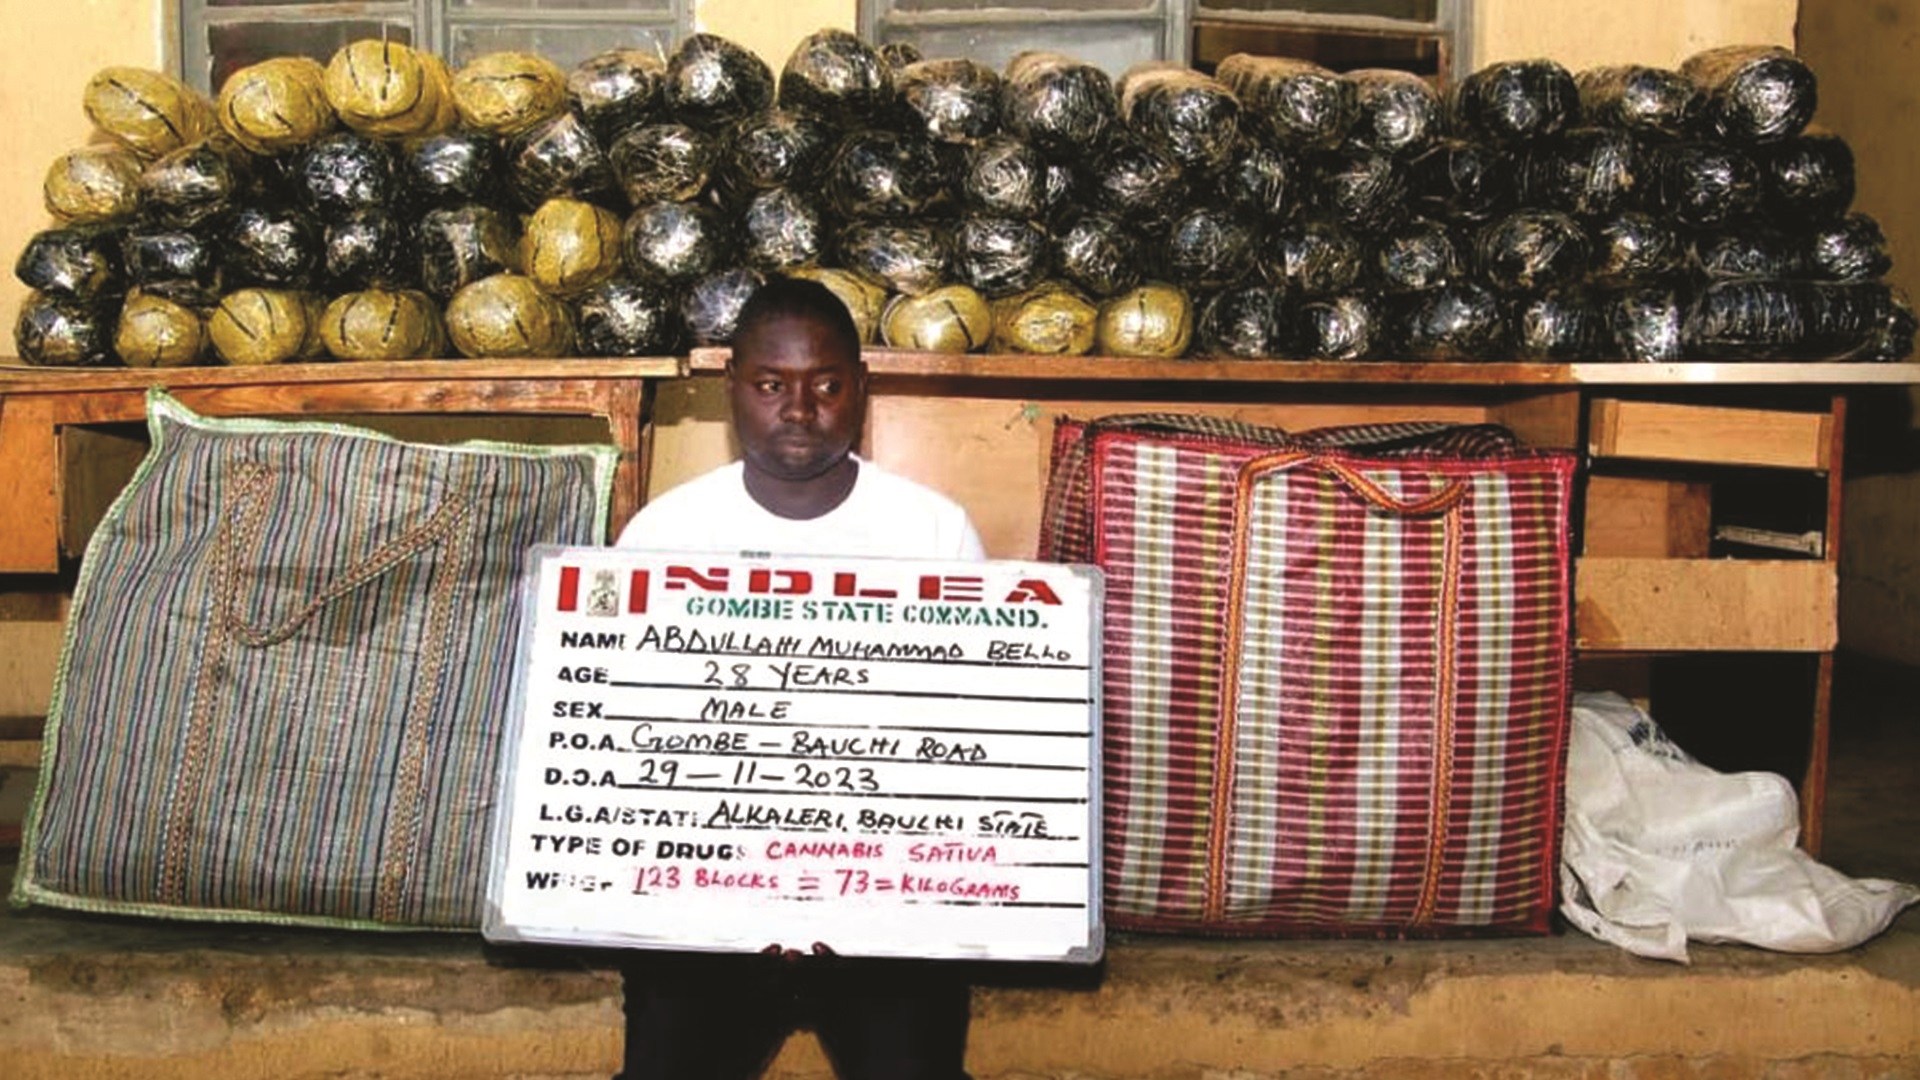 NDLEA
GOMBE STATE COMMAND.
NAME ABDULLAHI MUHAMMAD BELLO
AGE 28 YEARS
SEX MALE
P.O.A. GOMBE – BAUCHI ROAD
D.O.A 29 – 11 – 2023
L.G.A/STATE ALKALERI, BAUCHI STATE
TYPE OF DRUG: CANNABIS SATIVA
123 BLOCKS = 73 = KILOGRAMS